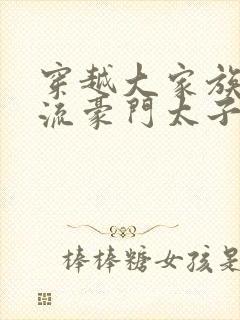 穿越大家族
流豪門太子
棒棒糖女孩是